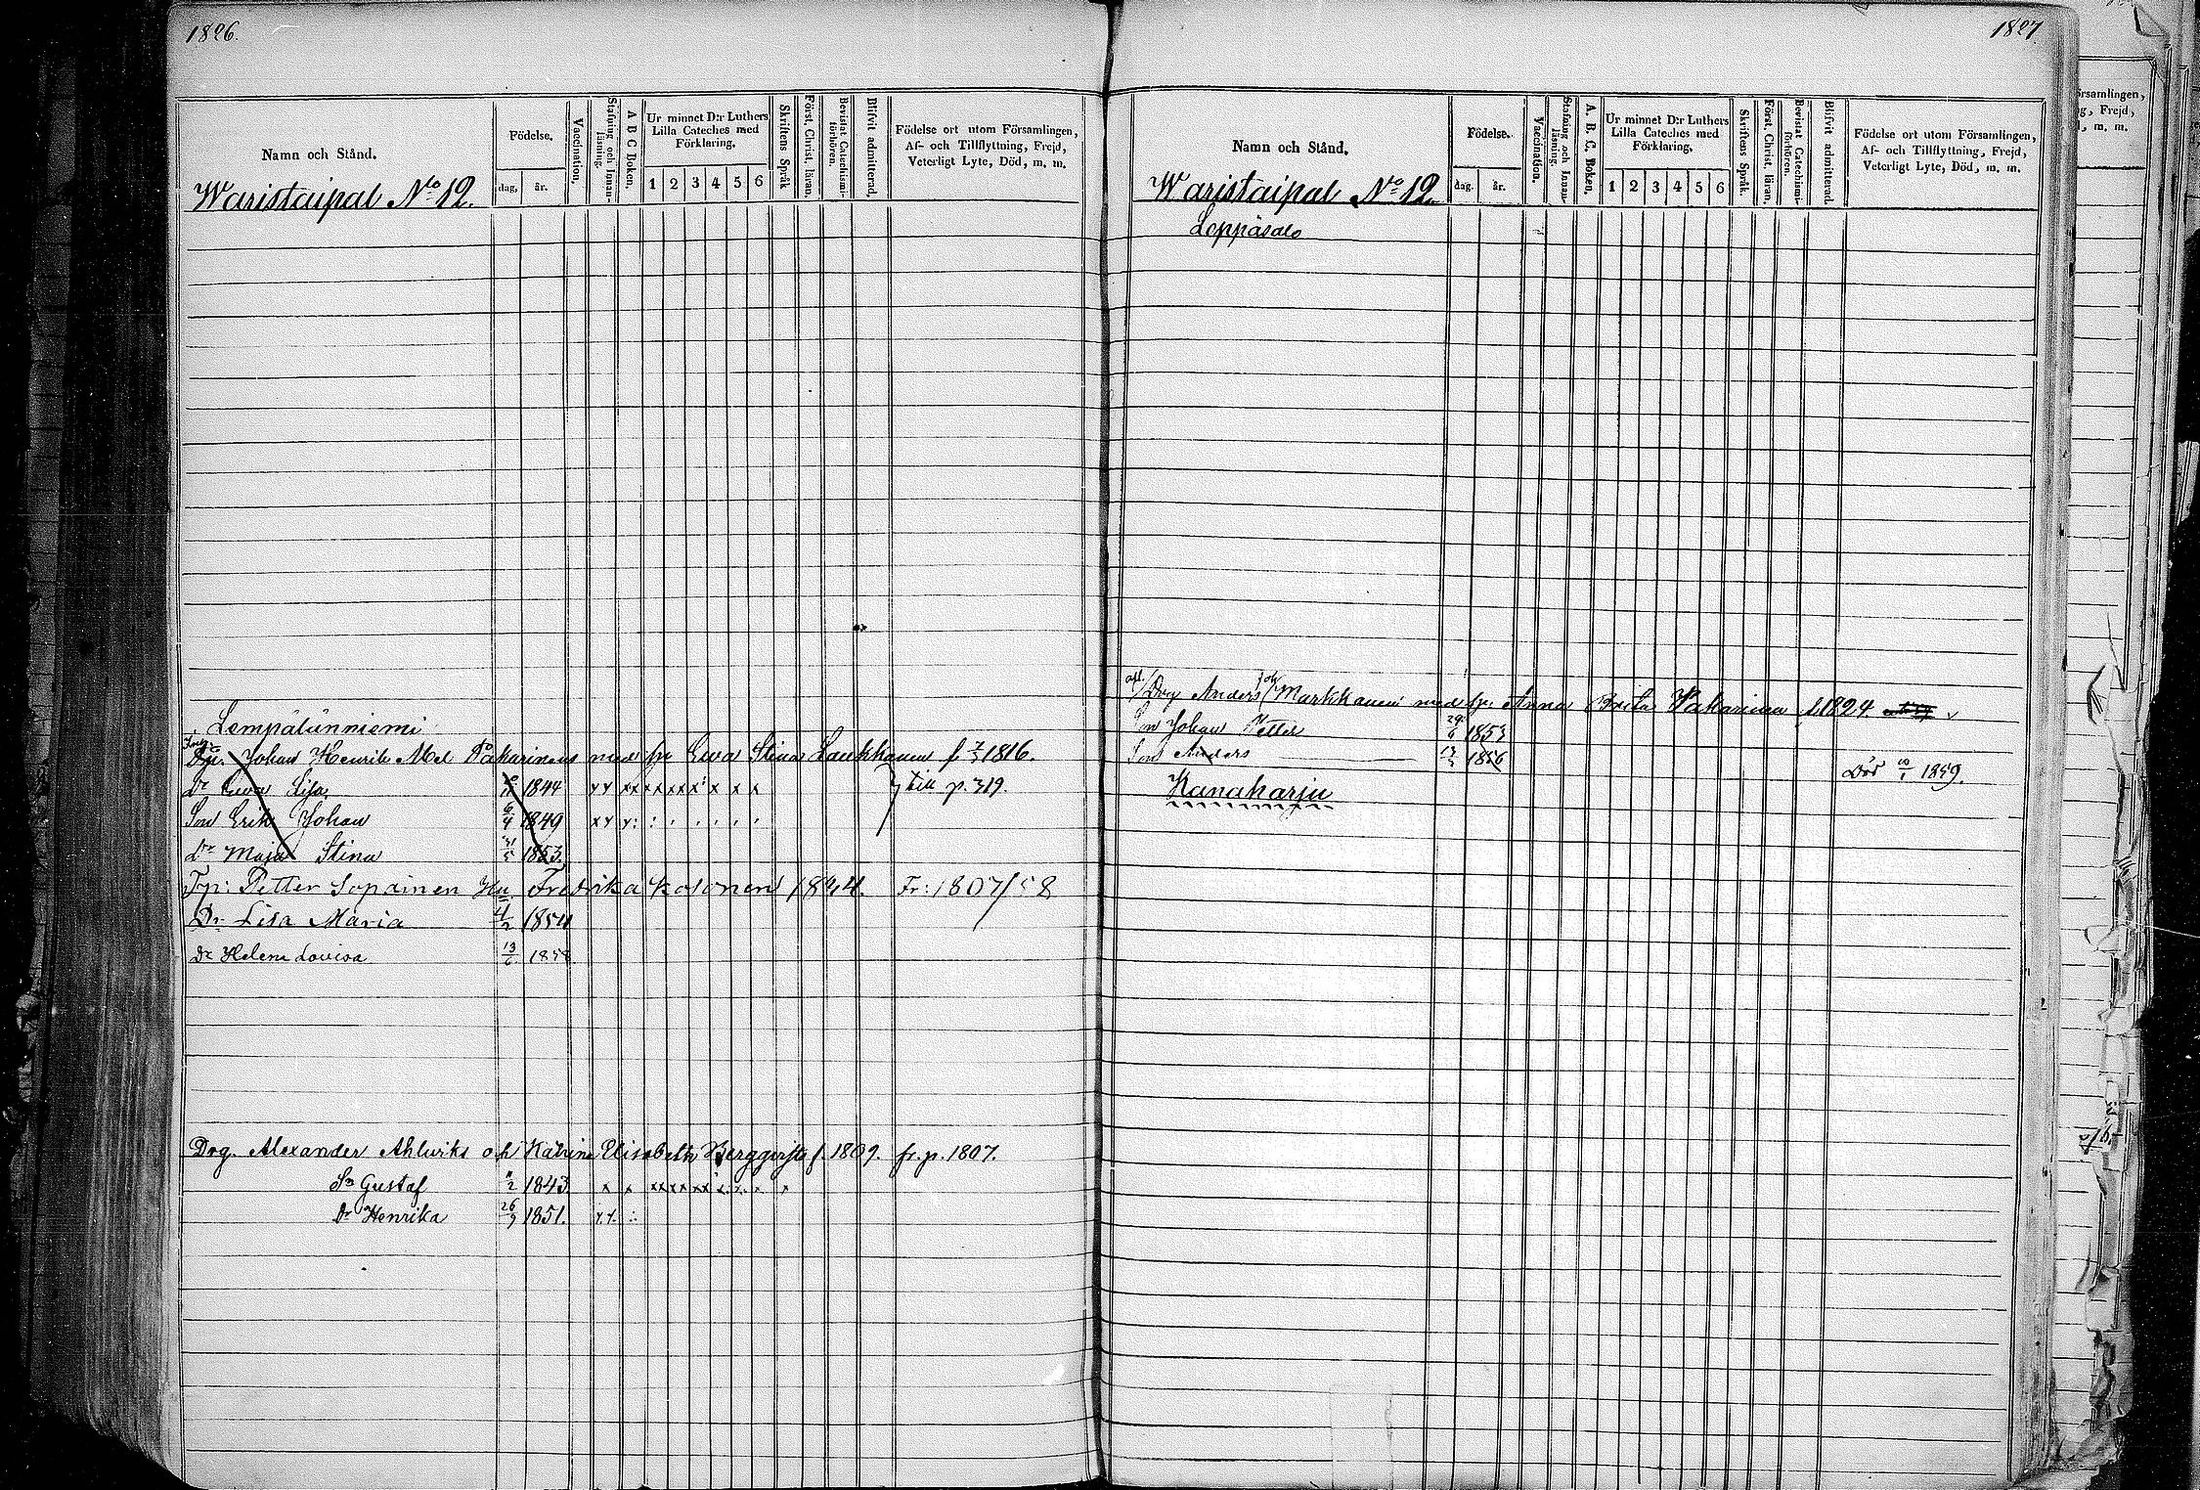 1826.
Namn och Stånd.
Födelse.
dag, år.
Vaccination,
Stafning och Innan-läsning.
A B C Boken,
Ur minnet D:r Luthers
Lilla Cateches med
Förklaring.
1 2 3 4 5 6
Skriftens Språk
Först. Christ. läran.
Bevistat Catechismi-förhören.
Blifvit admitterad,
Födelse ort utom Församlingen,
Af- och Tillflyttning, Frejd,
Veterligt Lyte, Död, m. m.
Waristaipal No 12.
Lempälänniemi
Johan Henrik Mat Pakarinen med hu Ewa Stina Laukkanen f 1816.
Dr Ewa Lisa 1844 till p. 319.
Son Erik Johan 6/4 1849
Dr Maja Stina 1853.
Trp: Petter Sopainen Hu Fredrika Kosonen 1824. Fr: 1807/58
Dr Lisa Maria 4/2 1854
Dr Helena Lovisa 13/6 1858
Drg. Alexander Ahlurks o h Katrina Elisabeth f. 1809. fr. p. 1807.
Sn Gustaf 1843
Dr Henrika 26/9 1851.
1827
Namn och Stånd.
Födelse.
dag. år.
Vaccination.
Stafning och Innan-läsning.
A. B. C. Boken.
Ur minnet D:r Luthers
Lilla Cateches med
Förklaring.
1 2 3 4 5 6
Skriftens Språk.
Först. Christ. läran.
Bevistat Catechismi-förhören.
Blifvit admitterad.
Födelse ort utom Församlingen,
Af- och Tillflyttning, Frejd,
Veterligt Lyte, Död, m. m.
Waristaipal No 12.
Leppäsalo
afl. Drg Anders Joh Markkanen med hu Anna Brita Pakarinen f. 1824.
Son Johan Petter 29/6 1853
Son Anders 1856 Död 1859.
Kanaharju